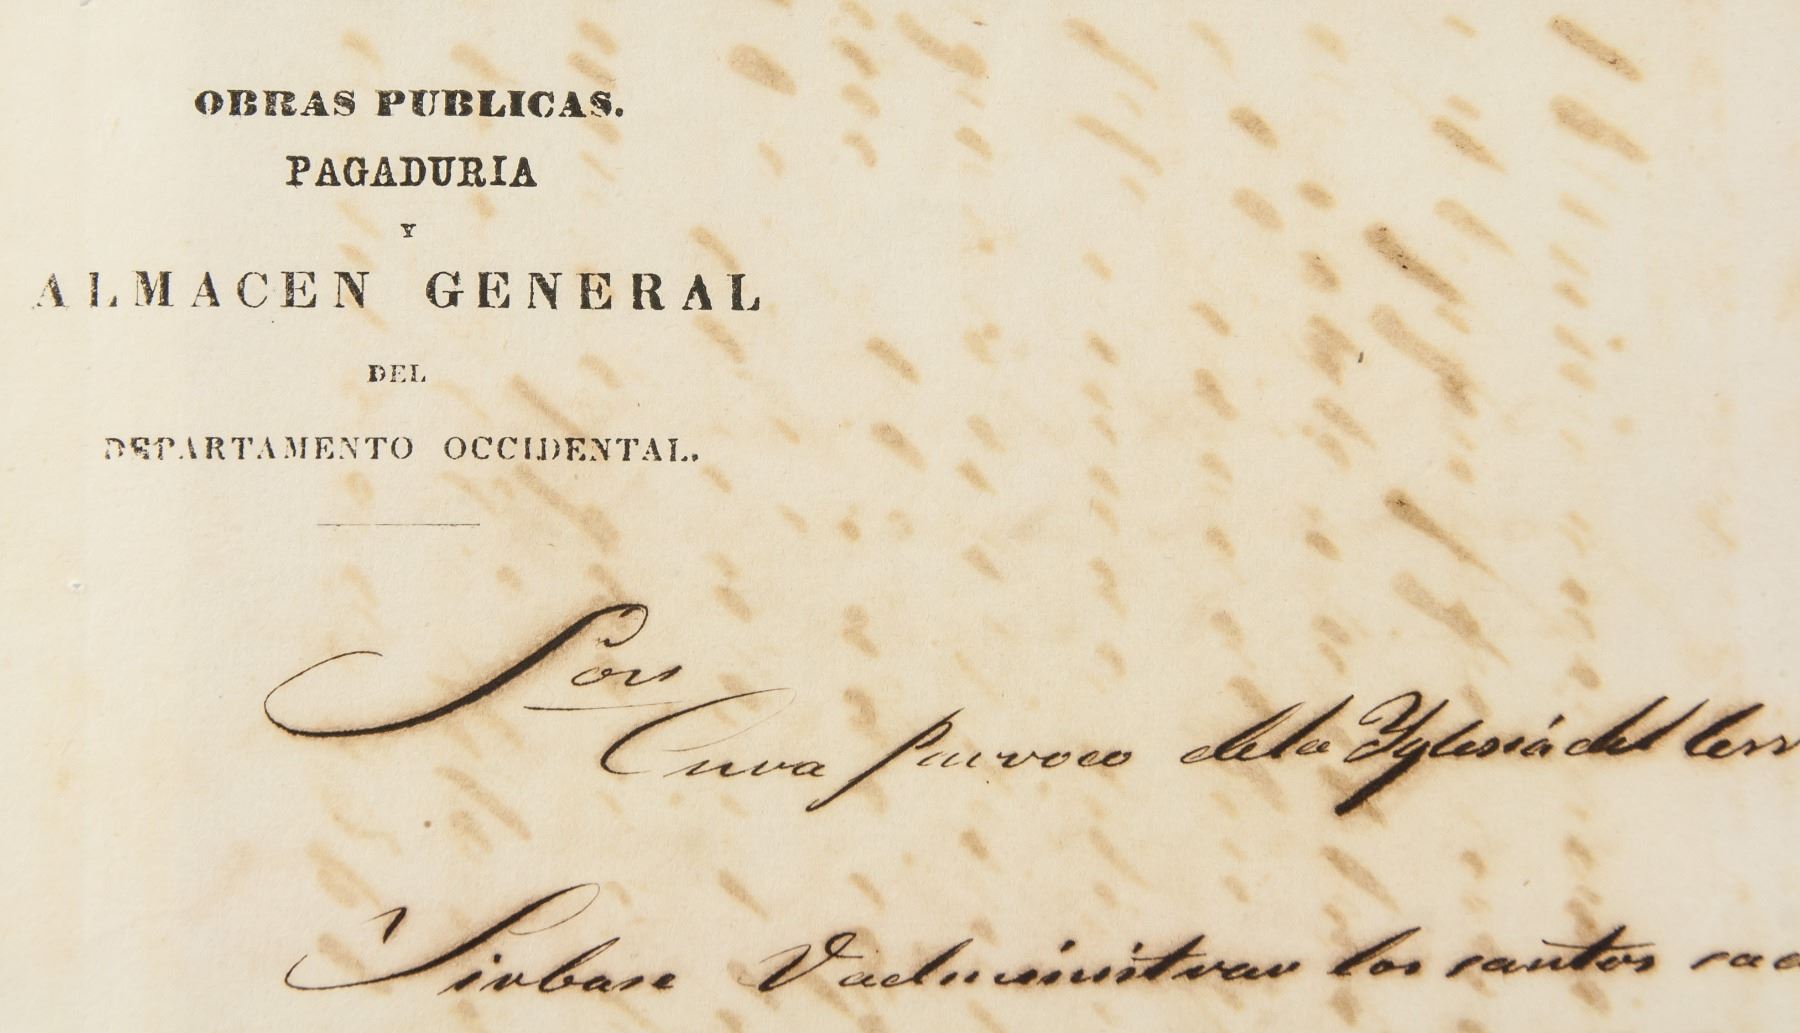 OBRAS PUBLICAS.
PAGADURIA
Y
ALMACEN GENERAL
DEL
DEPARTAMENTO OCCIDENTAL.
Sor
Cura parroco dela Yglesiá del Cerr
Sirbase V administrar los santos sac